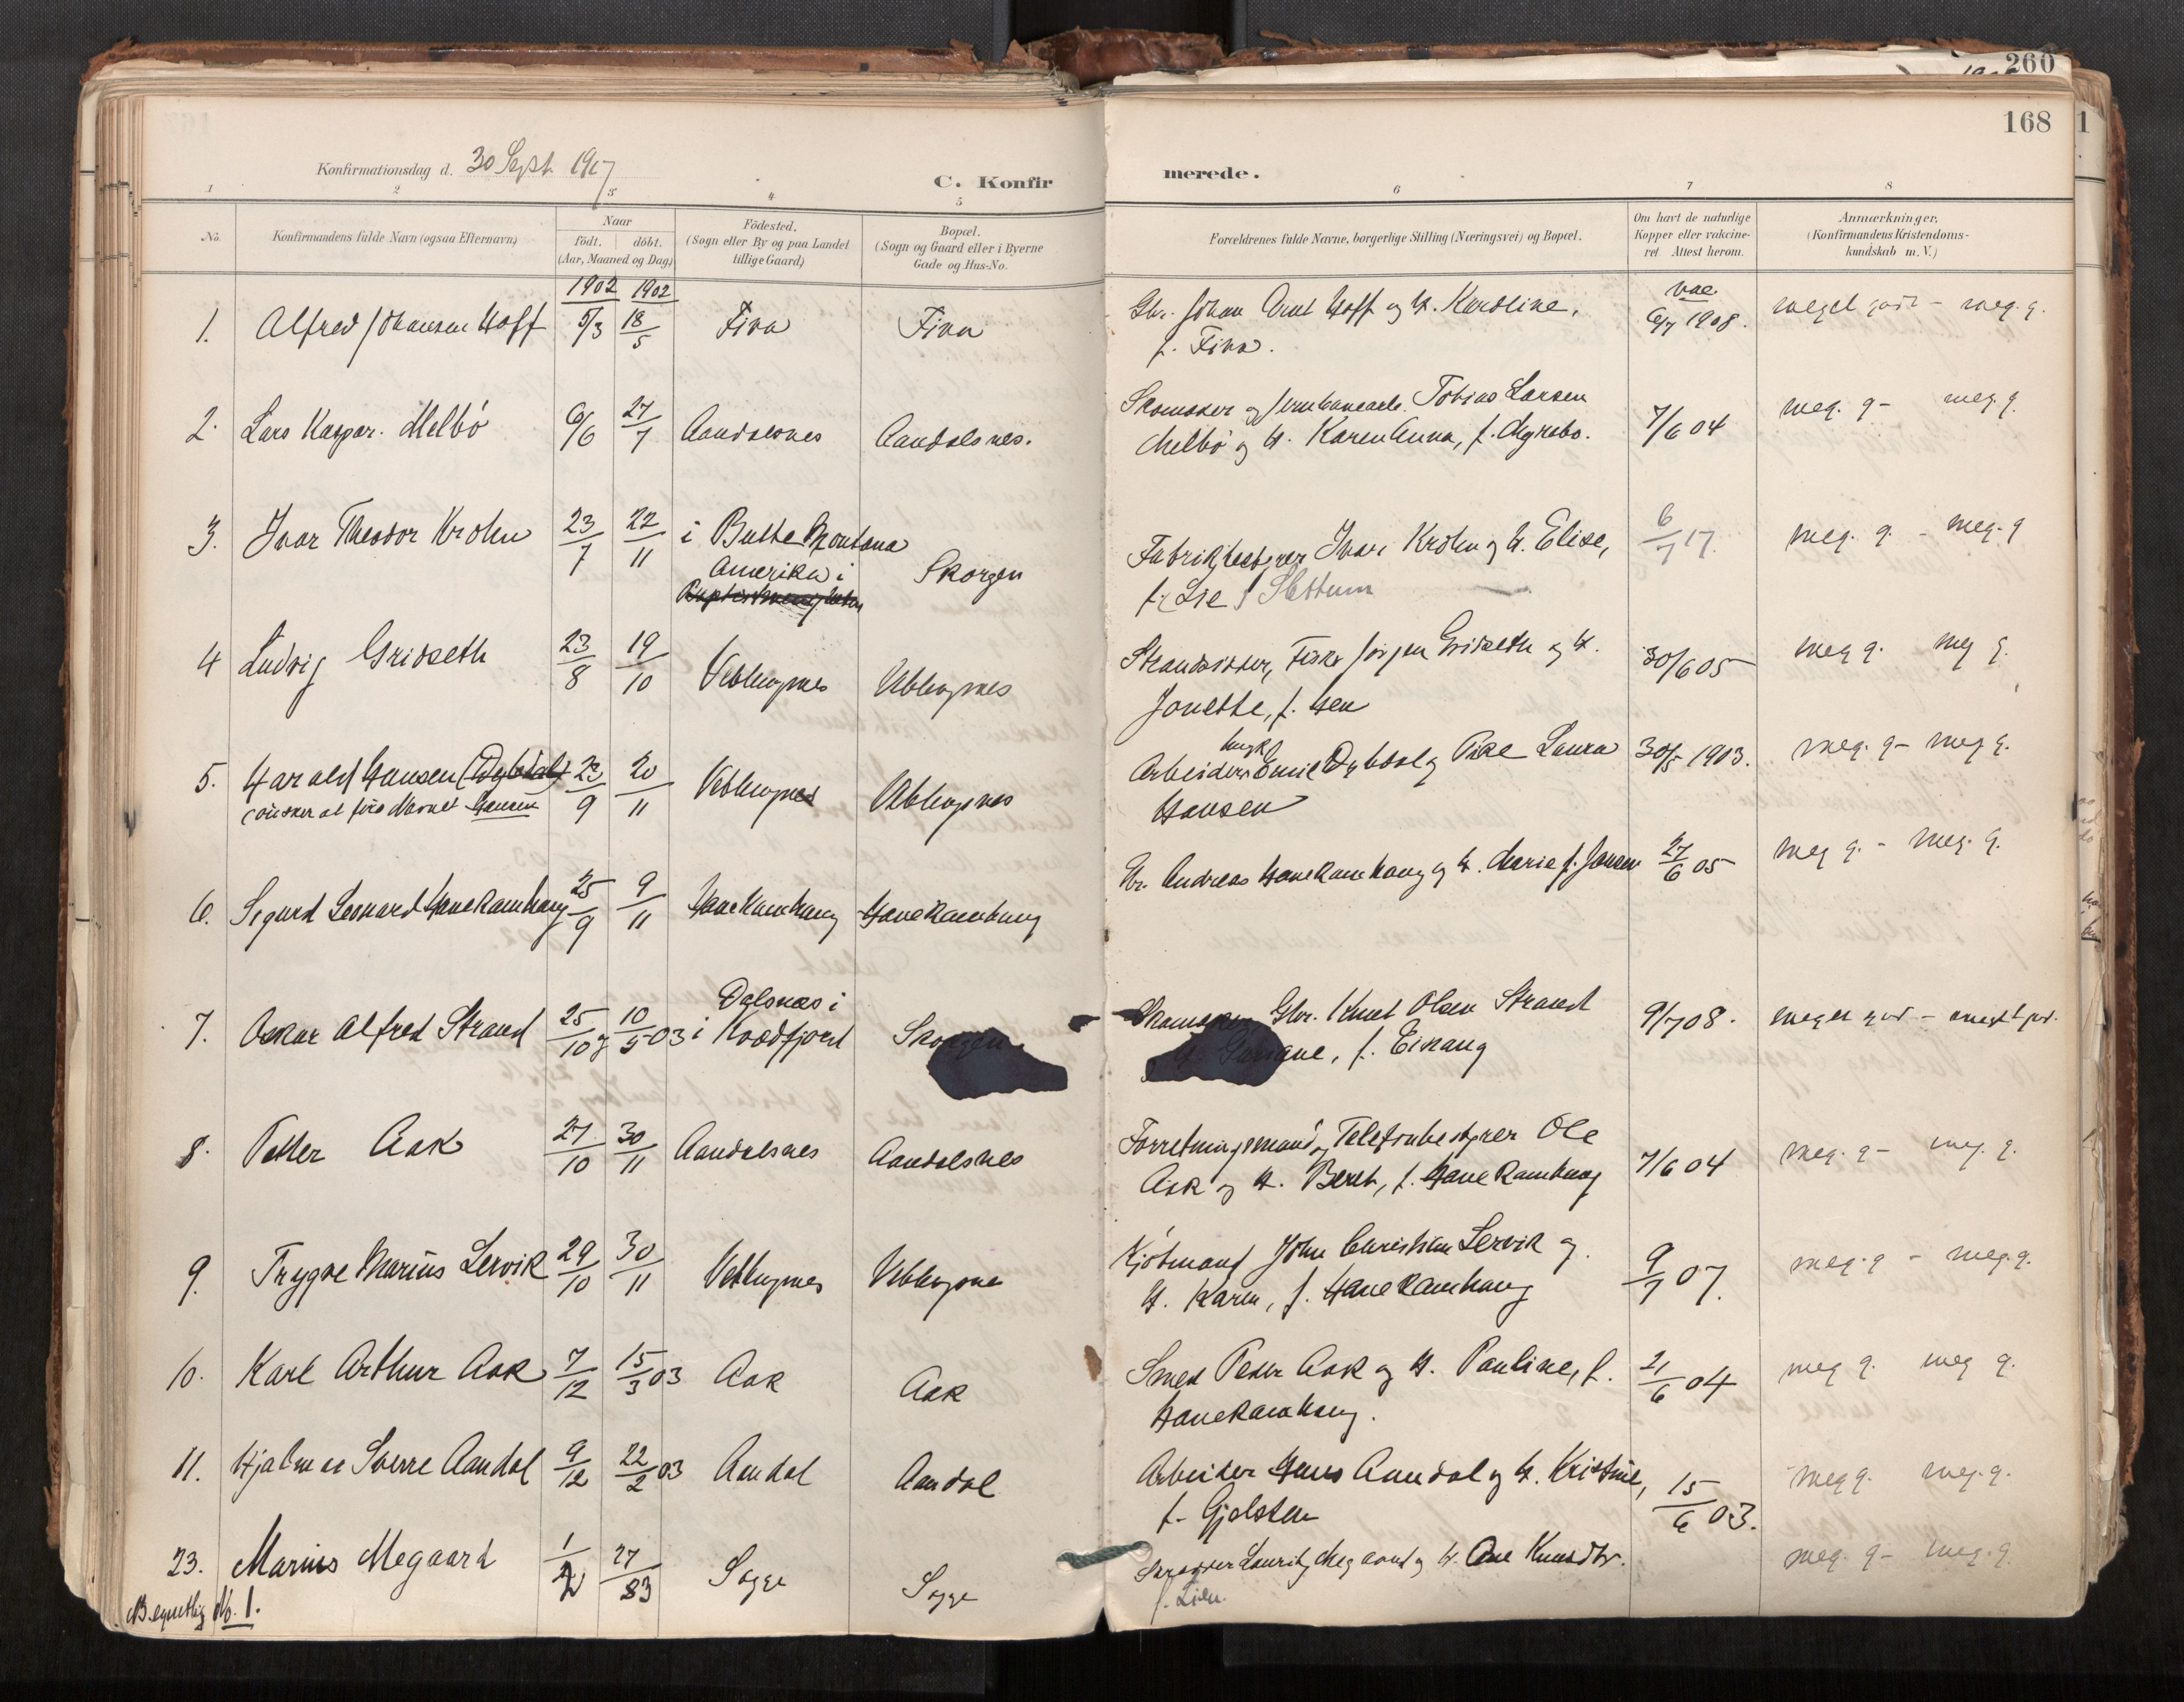 260
168
1
Konfirmationsdag d. 30 Sept. 1917
C. Konfir
merede.
1 2 3 4 5 6 7 8
No.
Konfirmandens fulde Navn (ogsaa Efternavn)
Naar
födt. döbt.
(Aar, Maaned og Dag)
Födested.
(Sogn eller By og paa Landet
tillige Gaard)
Bopæl.
(Sogn og Gaard eller i Byerne
Gade og Hus-No.
Forældrenes fulde Navne, borgerlige Stilling (Næringsvei) og Bopæl.
Om havt de naturlige
Kopper eller vakcine-
ret Attest herom.
Anmærkninger,
(Konfirmandens Kristendoms-
kundskab m. V.)
1902 1902
1. Alfred Johansen Hoff 5/3 18/5 Fiva Fiva
Gbr. Johan Arnt Hoff og H. Karoline,
f. Fiva.
vac.
6/7 1908.
meget godt - meg. g.
2. Lars Kaspar Melbö 6/6 27/7 Aandalsnes Aandalsnes.
Skomaker og Tobias Larsen
Melbö og H. Karen Anna, f. Myrebø.
7/6 04
meg. g - meg. g.
3. Ivar Theodor Krohn 23/7 22/11 i Butte Montana
Amerika i
Skorgen
Fabrikbestyrer Ivar Krohn og H. Elise,
f. Lie Slettum
6/7 17.
meg. g. - meg. g
4 Ludvig Gridseth 23/8 19/10 Veblungsnes Veblungsnes
Strandsitter, Fisker Jörgen Gridseth og H.
Jonette, f. Hen
30/6 05
meg g. meg g.
5. Harald Hansen (Dybdal) 23/9 20/11 Veblungsnes Veblungsnes
(önsker at före Navnet Hansen
ungk.
Arbeider Emil Dybdal og Pike Laura
Hansen
30/5 1903.
meg. g - meg g.
6. Sigurd Leonard Hanekamhaug 25/9 9/11 Hanekamhaug Hanekamhaug
Gbr. Andreas Hanekamhaug og H. Marie f. Jensen
27/6 05
meg g. - meg. g.
7. Oskar Alfred Strand 25/10 10/5 03
Dalsnæs i
i Kvædfjord
Skorgen
Skomager, Gbr. Knut Olsen Strand
f. Eikaug
9/7 08.
meget god - meget god.
8. Petter Aak 27/10 30/11 Aandalsnes Aandalsnes
Forretningsmand og Telefonbestyrer Ole
Aak og H. Beret, f. Hanekamhaug
7/6 04
meg. g - meg. g.
9. Trygve Marius Lervik 29/10 30/11 Veblungsnes Veblungsnes
Kjöbmand John Christian Lervik og
H. Karen, f. Hanekamhaug
9/7 07.
meg. g - meg. g.
10. Karl Arthur Aak 7/12 15/3 03 Aak Aak
Smed Peder Aak og H. Pauline, f.
Hanekamhaug.
21/6 04
meg g. meg g.
11. Hjalmar Sverre Aandal 9/12 22/2 03 Aandal Aandal
Arbeider Hans Aandal og H. Kristine,
f. Gjelsten
15/6 03.
meg g. meg. g.
23. Marius Megaard 1/2 27/3 Sogge Sogge
NB egentlig No. 1.
Skrædder Laurits Megaard og H. Ane Knudtr.
f. Lien.
meg. g - meg. g.